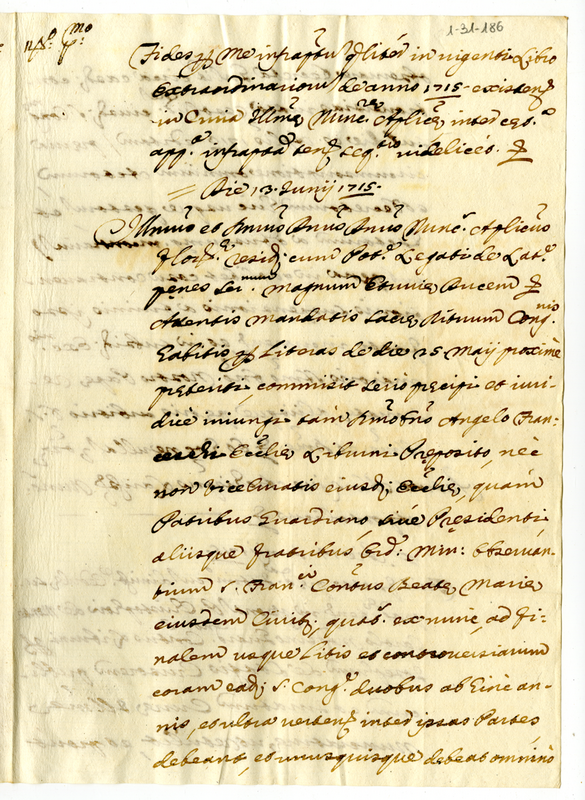 1-31-186
Fides per me infraptu qliter in vigenti Libro
Extraordinarioru de anno 1715 - existen
in Curia Illmi Nunc. Aplici inter
app. infrapta seq. videlicet.
= Die 13. Junij 1715 -
Illmus et Rmus Dnus Dnus Nunc. Aplicus
Flor. resid: cum Pot. Legati de Lat.
penes Ser.mum Magnum Etruriæ Ducem
Attentis mandatis Sacræ Rituum Cong.nis
habitis per Literas de die 25 Maij proxime
preteriti, commisit serio precipi et iuri-
dicè iniungi tam Rmo Dno Angelo Fran-
Ecclie Liburni Preposito, nec
non Vicecuratis eiusd: Ecclie, quam
Patribus Guardiano, sive Presidenti
aliisque fratribus Ord: Min: Observan-
tium S. Fran.ci Contus Beate Marie
eiusdem Civit., quat. ex nunc, ad fi-
nalem usque Litis et controversiarum
coram ead. S. Cong. duobus ab hinc an-
nis, et ultra verten inter ipsas Partes
debeant, et unusquisque debeat omnino